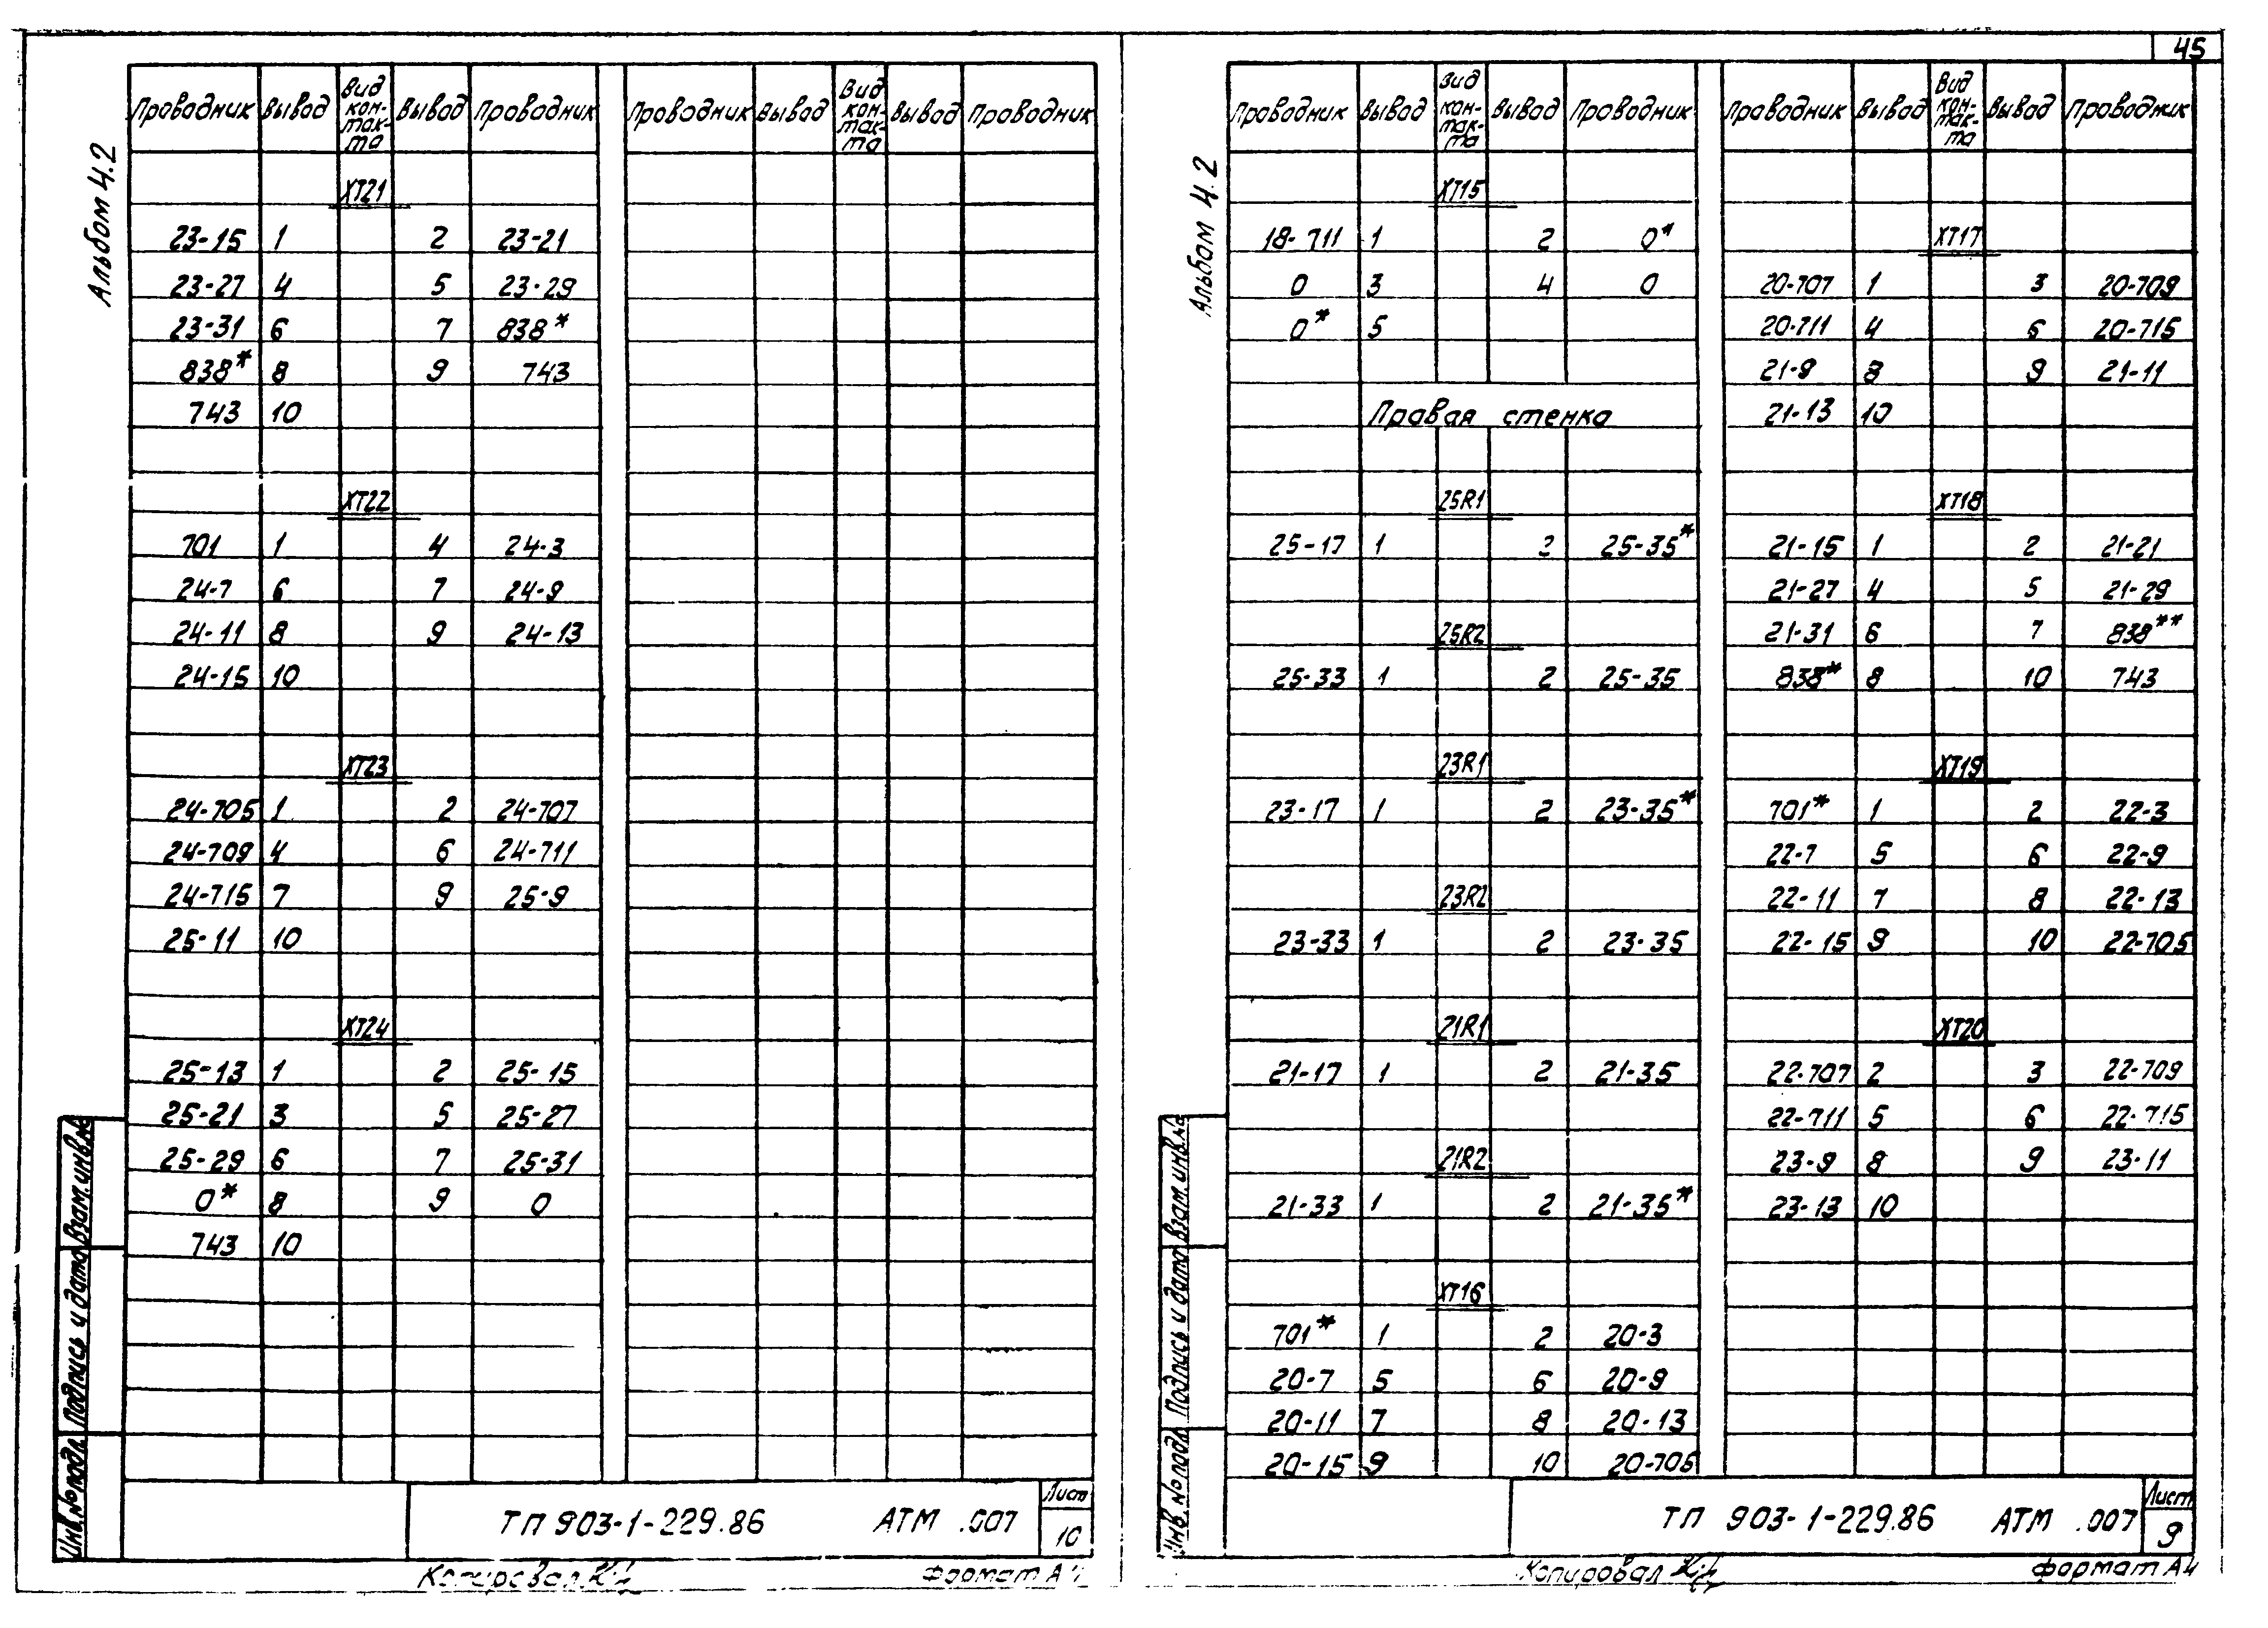 45
Альбом 4.2
Проводник Вывод Вид кон-так-та Вывод Проводник Проводник Вывод Вид кон-так-та Вывод Проводник
ХТ21
23-15 1 2 23-21
23-27 4 5 23-29
23-31 6 7 838*
838* 8 9 743
743 10
ХТ22
701 1 4 24-3
24-7 6 7 24-9
24-11 8 9 24-13
24-15 10
ХТ23
24-705 1 2 24-707
24-709 4 6 24-711
24-715 7 9 25-9
25-11 10
ХТ24
25-13 1 2 25-15
25-21 3 5 25-27
25-29 6 7 25-31
0* 8 9 0
743 10
Инв.№подл. Подпись и дата Взам.инв.№
ТП 903-1-229.86 АТМ .007
Лист
10
Копировал
Формат А4
Альбом 4.2
Проводник Вывод Вид кон-так-та Вывод Проводник
ХТ15
18-711 1 2 0*
0 3 4 0
0* 5
Правая стенка
25R1
25-17 1 2 25-35*
25R2
25-33 1 2 25-35
23R1
23-17 1 2 23-35*
23R2
23-33 1 2 23-35
21R1
21-17 1 2 21-35
21R2
21-33 1 2 21-35*
ХТ16
701* 1 2 20-3
20-7 5 6 20-9
20-11 7 8 20-13
20-15 9 10 20-705
Проводник Вывод Вид кон-так-та Вывод Проводник
ХТ17
20-707 1 3 20-709
20-711 4 6 20-715
21-9 8 9 21-11
21-13 10
ХТ18
21-15 1 2 21-21
21-27 4 5 21-29
21-31 6 7 838**
838* 8 10 743
ХТ19
701* 1 2 22-3
22-7 5 6 22-9
22-11 7 8 22-13
22-15 9 10 22-705
ХТ20
22-707 2 3 22-709
22-711 5 6 22-715
23-9 8 9 23-11
23-13 10
Инв.№подл. Подпись и дата Взам.инв.№
ТП 903-1-229.86 АТМ .007
Лист
9
Копировал
Формат А4